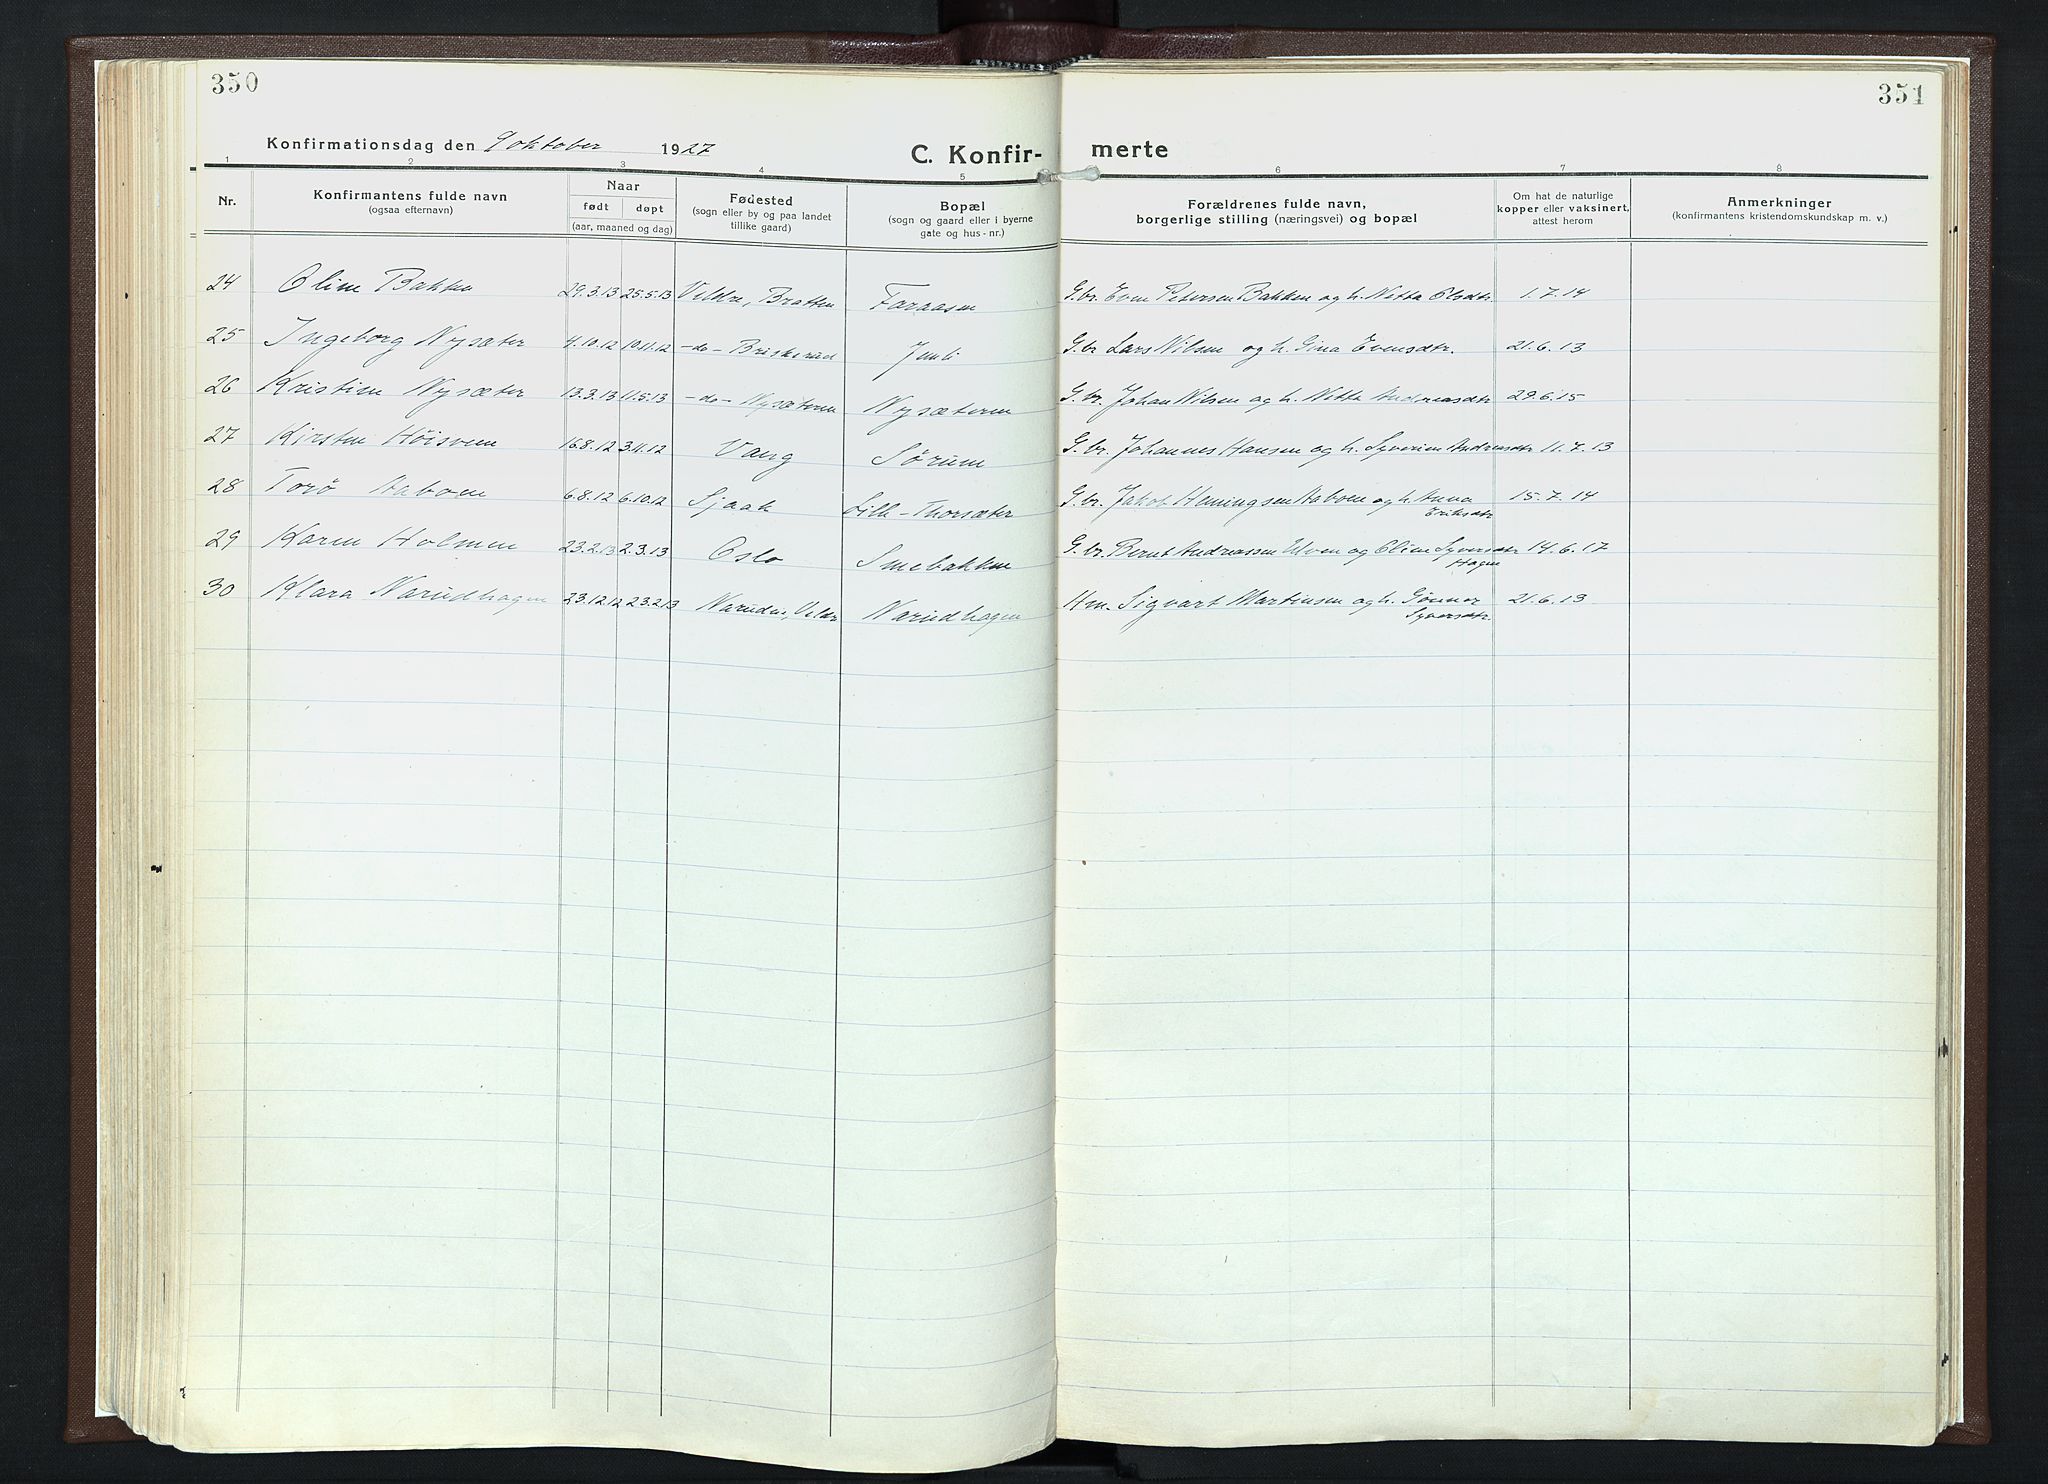 350
351
Konfirmationsdag den 9 oktober 1927
C. Konfir- merte
1 2 3 4 5 6 7 8
Nr.
Konfirmantens fulde navn
(ogsaa efternavn)
Naar
født døpt
(aar, maaned og dag)
Fødested
(sogn eller by og paa landet
tillike gaard)
Bopæl
(sogn og gaard eller i byerne
gate og hus-nr.)
Forældrenes fulde navn,
borgerlige stilling (næringsvei) og bopæl
Om hat de naturlige
kopper eller vaksinert,
attest herom
Anmerkninger
(konfirmantens kristendomskundskap m. v.)
24 Oline Bakken 29.3.13 25.5.13 Veldre, Bratten Faraasen G.br. Even Petersen Bakken og h. Netta Olsdtr 1.7.14
25 Ingeborg Nysæter 4.10.12 10.11.12 -do- Briskerud Imli G.br Lars Nilsen og h. Gina Evensdtr. 21.6.13
26 Kristine Nysæter 13.3.13 11.5.13 -do- Nysæteren Nysæteren G.br. Johan Nilsen og h. Netta Andreasdtr 29.6.15
27 Kirsten Høisveen 16.8.12 3.11.12 Vang Sørum G.br. Johannes Hansen og h. Syverine Andreasdtr 11.7.13
28 Torø Aaboen 6.8.12 6.10.12 Sjaak Lille-Thorsæter G.br. Jakob Hemingsen Aaboen og h. Anna 15.7.14
Eriksdtr
29 Karen Holmen 23.2.13 2.3.13 Oslo Smebakken G.br. Bernt Andreassen Ulven og Oline Syversdtr 14.6.17
Hagen
30 Klara Narudhagen 23.12.12 23.2.13 Naruden, Veldr Narudhagen Hm. Sigvart Martinsen og h. Gunnor 21.6.13
Syversdtr.